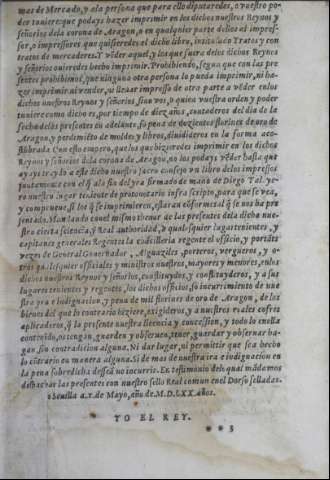 mas de Mercado, y ala persona que para ello diputaredes, o vuestro po-
der tuuiere: que podays hazer imprimir en los dichos nuestros Reynos y
señorios dela corona de Aragon, o en qualquier parte dellos al impres-
sor, o impressores que quisieredes el dicho libro, intitulado Tratos y con
tratos de mercaderes. Y vēder aquel, y los que fuera delos dichos Reynos
y señorios ouieredes hecho imprimir. Prohibiendo, segun que con las pre
sentes prohibimos, que ninguna otra persona lo pueda imprimir, ni ha-
zer imprimir ni vender, ni lleuar impresso de otra parte a vēder enlos
dichos nuestros Reynos y señorios, sino vos, o quien vuestra orden y poder
tuuiere como dicho es, por tiempo de diez años, contaderos del dia de la
fecha delas presentes en adelante, so pena de dozientos florines de oro de
Aragon, y perdimiēto de moldes y libros, diuidideros en la forma aco-
stūbrada. Con esto empero, que los que hizieredes imprimir en los dichos
Reynos y señorios dela corona de Aragon, no los podays vēder hasta que
ayays traydo a este dicho nuestro sacro consejo vn libro delos impressos
juntamente con el q̄ al fin del yra firmado de mano de Diego Tal.
nuestro lugar teniente de protonotario infra scripto, para que se vea,
y compruene, si los q̄ se imprimieren, estaran cōformes al q̄ se nos ha pre
sentado. Mandando conel mismo thenor de las presentes dela dicho nue-
stro cierta sciencia, y Real authoridad, a qualesquier lugartenientes, y
capitanes generales Regentes la cācilleria regente el officio, y portāts
vezes de General Gouernador, Alguaziles, porteros, vergueros, y o-
tros qualesquier officiales y ministros nuestros, mayores y menores, enlos
dichos nuestros Reynos y señorios, constituydos, y constituyderos, y a sus
lugartenientes y regentes, los dichos officios, so incurrimiento de nue
stra yra e indignacion, y pena de mil florines de oro de Aragon, de los
bienes del que lo contrario hiziere, exigideros, y a nuestros reales cofres
aplicaderos, q̄ la presente nuestra licencia y concession, y todo lo enella
contenido, os tengan, guarden y obseruen, tener, guardar y obseruar ha-
gan sin contradicion alguna. Ni dar lugar, ni permittir que sea hecho
lo cōtrario en manera alguna. Si de mas de nuestra ira e indignacion en
la pena sobredicha desseā no incurrir. En testimonio delo qual mādamos
despachar las presentes con nuestro sello Real comun enel Dorso selladas.
Seuilla a. v. de Mayo, año de M.D.LXX. años.
YO EL REY.
3